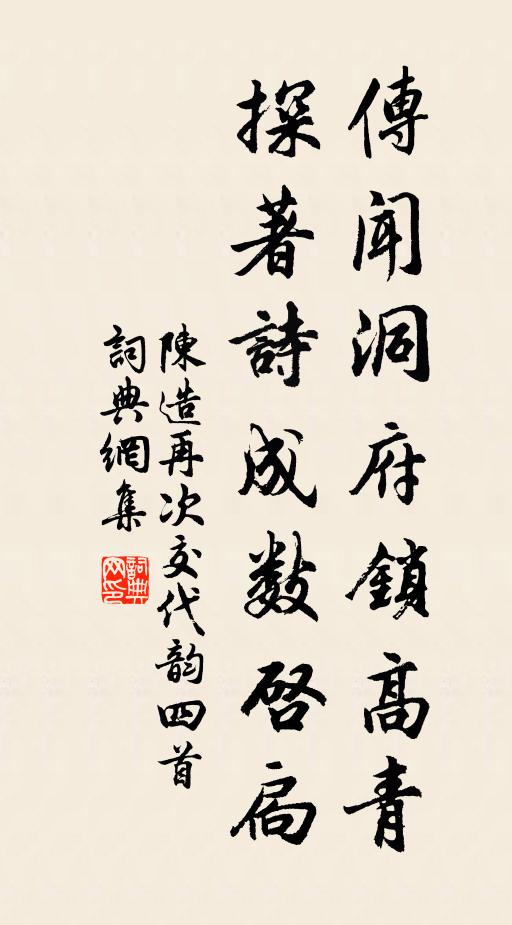 傳聞洞府鎖高青
探著詩成數啓扃
陳造再次交代韵四首
詞典網集
詞典网印